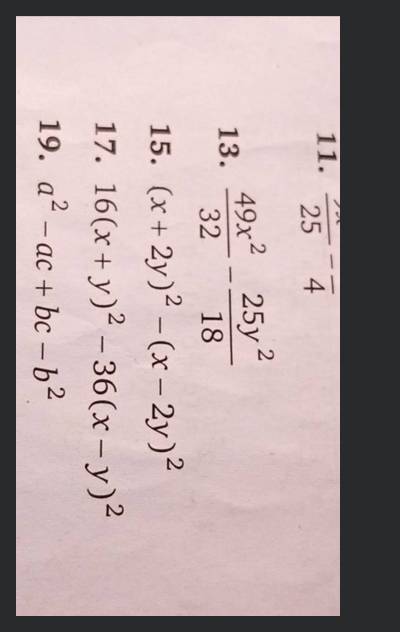 11. /25 − /4
13. 49x²/32 − 25y²/18
15. (x + 2y)² − (x − 2y)²
17. 16(x + y)² − 36(x − y)²
19. a² − ac + bc − b²